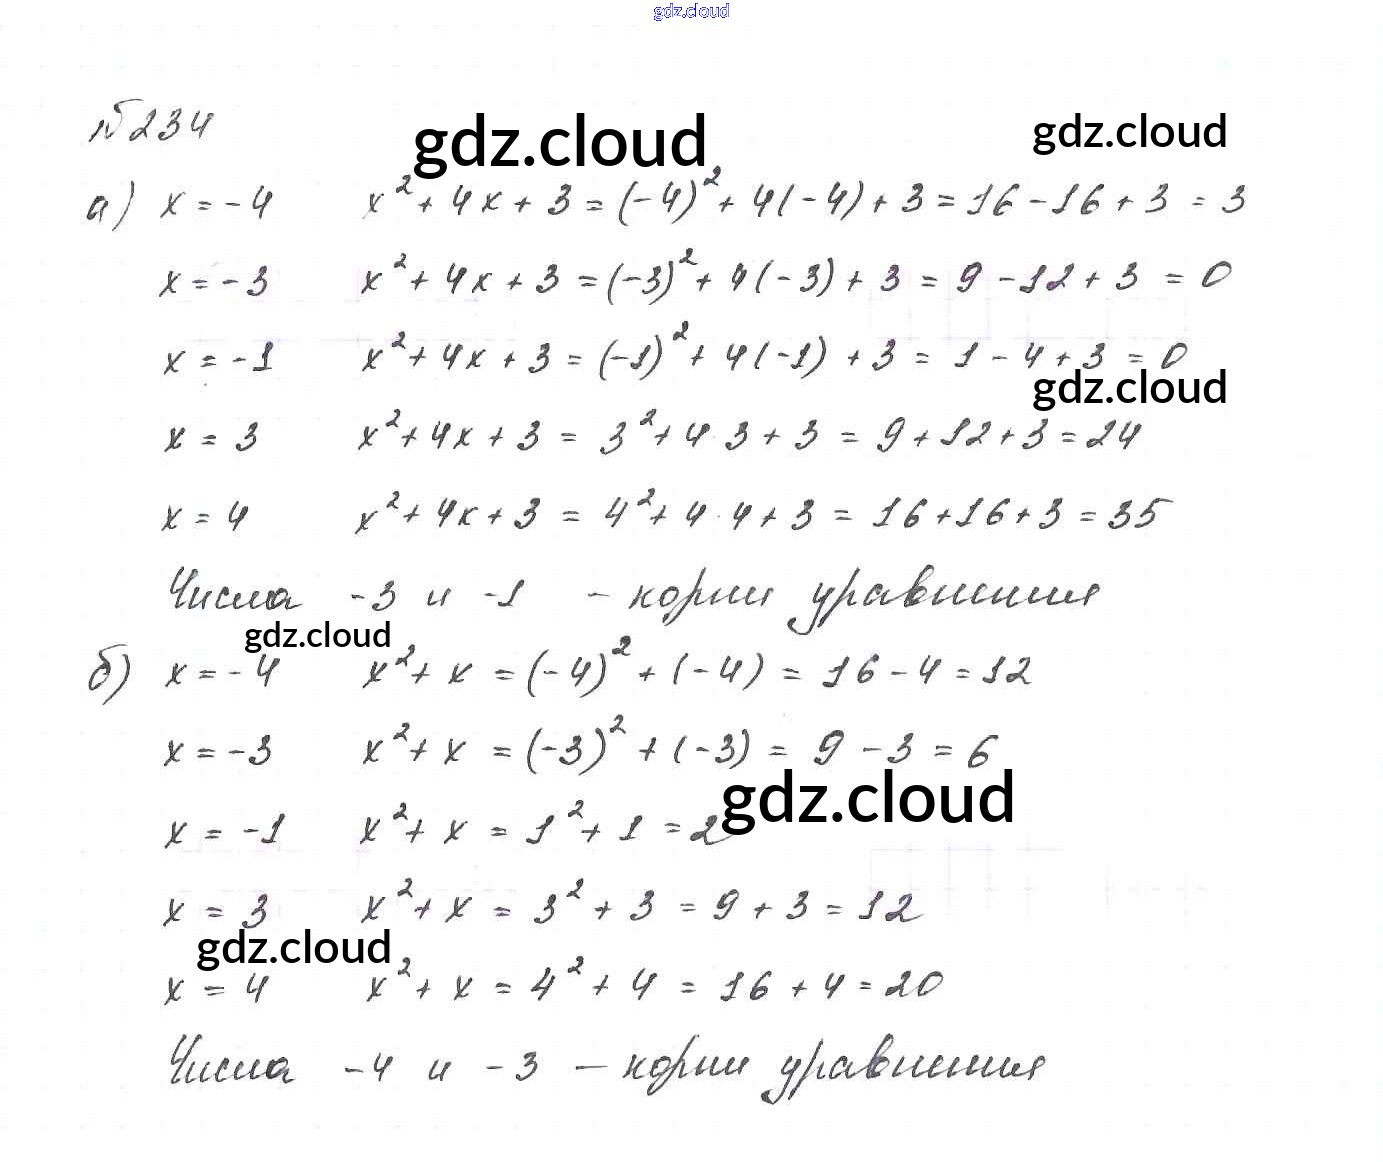 gdz.cloud
№234
gdz.cloud
gdz.cloud
а) x = -4 x² + 4x + 3 = (-4)² + 4(-4) + 3 = 16 - 16 + 3 = 3
x = -3 x² + 4x + 3 = (-3)² + 4(-3) + 3 = 9 - 12 + 3 = 0
x = -1 x² + 4x + 3 = (-1)² + 4(-1) + 3 = 1 - 4 + 3 = 0
gdz.cloud
x = 3 x² + 4x + 3 = 3² + 4·3 + 3 = 9 + 12 + 3 = 24
x = 4 x² + 4x + 3 = 4² + 4·4 + 3 = 16 + 16 + 3 = 35
Числа -3 и -1 - корни уравнения
gdz.cloud
б) x = -4 x² + x = (-4)² + (-4) = 16 - 4 = 12
x = -3 x² + x = (-3)² + (-3) = 9 - 3 = 6
gdz.cloud
x = -1 x² + x = 1² + 1 = 2
x = 3 x² + x = 3² + 3 = 9 + 3 = 12
gdz.cloud
x = 4 x² + x = 4² + 4 = 16 + 4 = 20
Числа -4 и -3 - корни уравнения